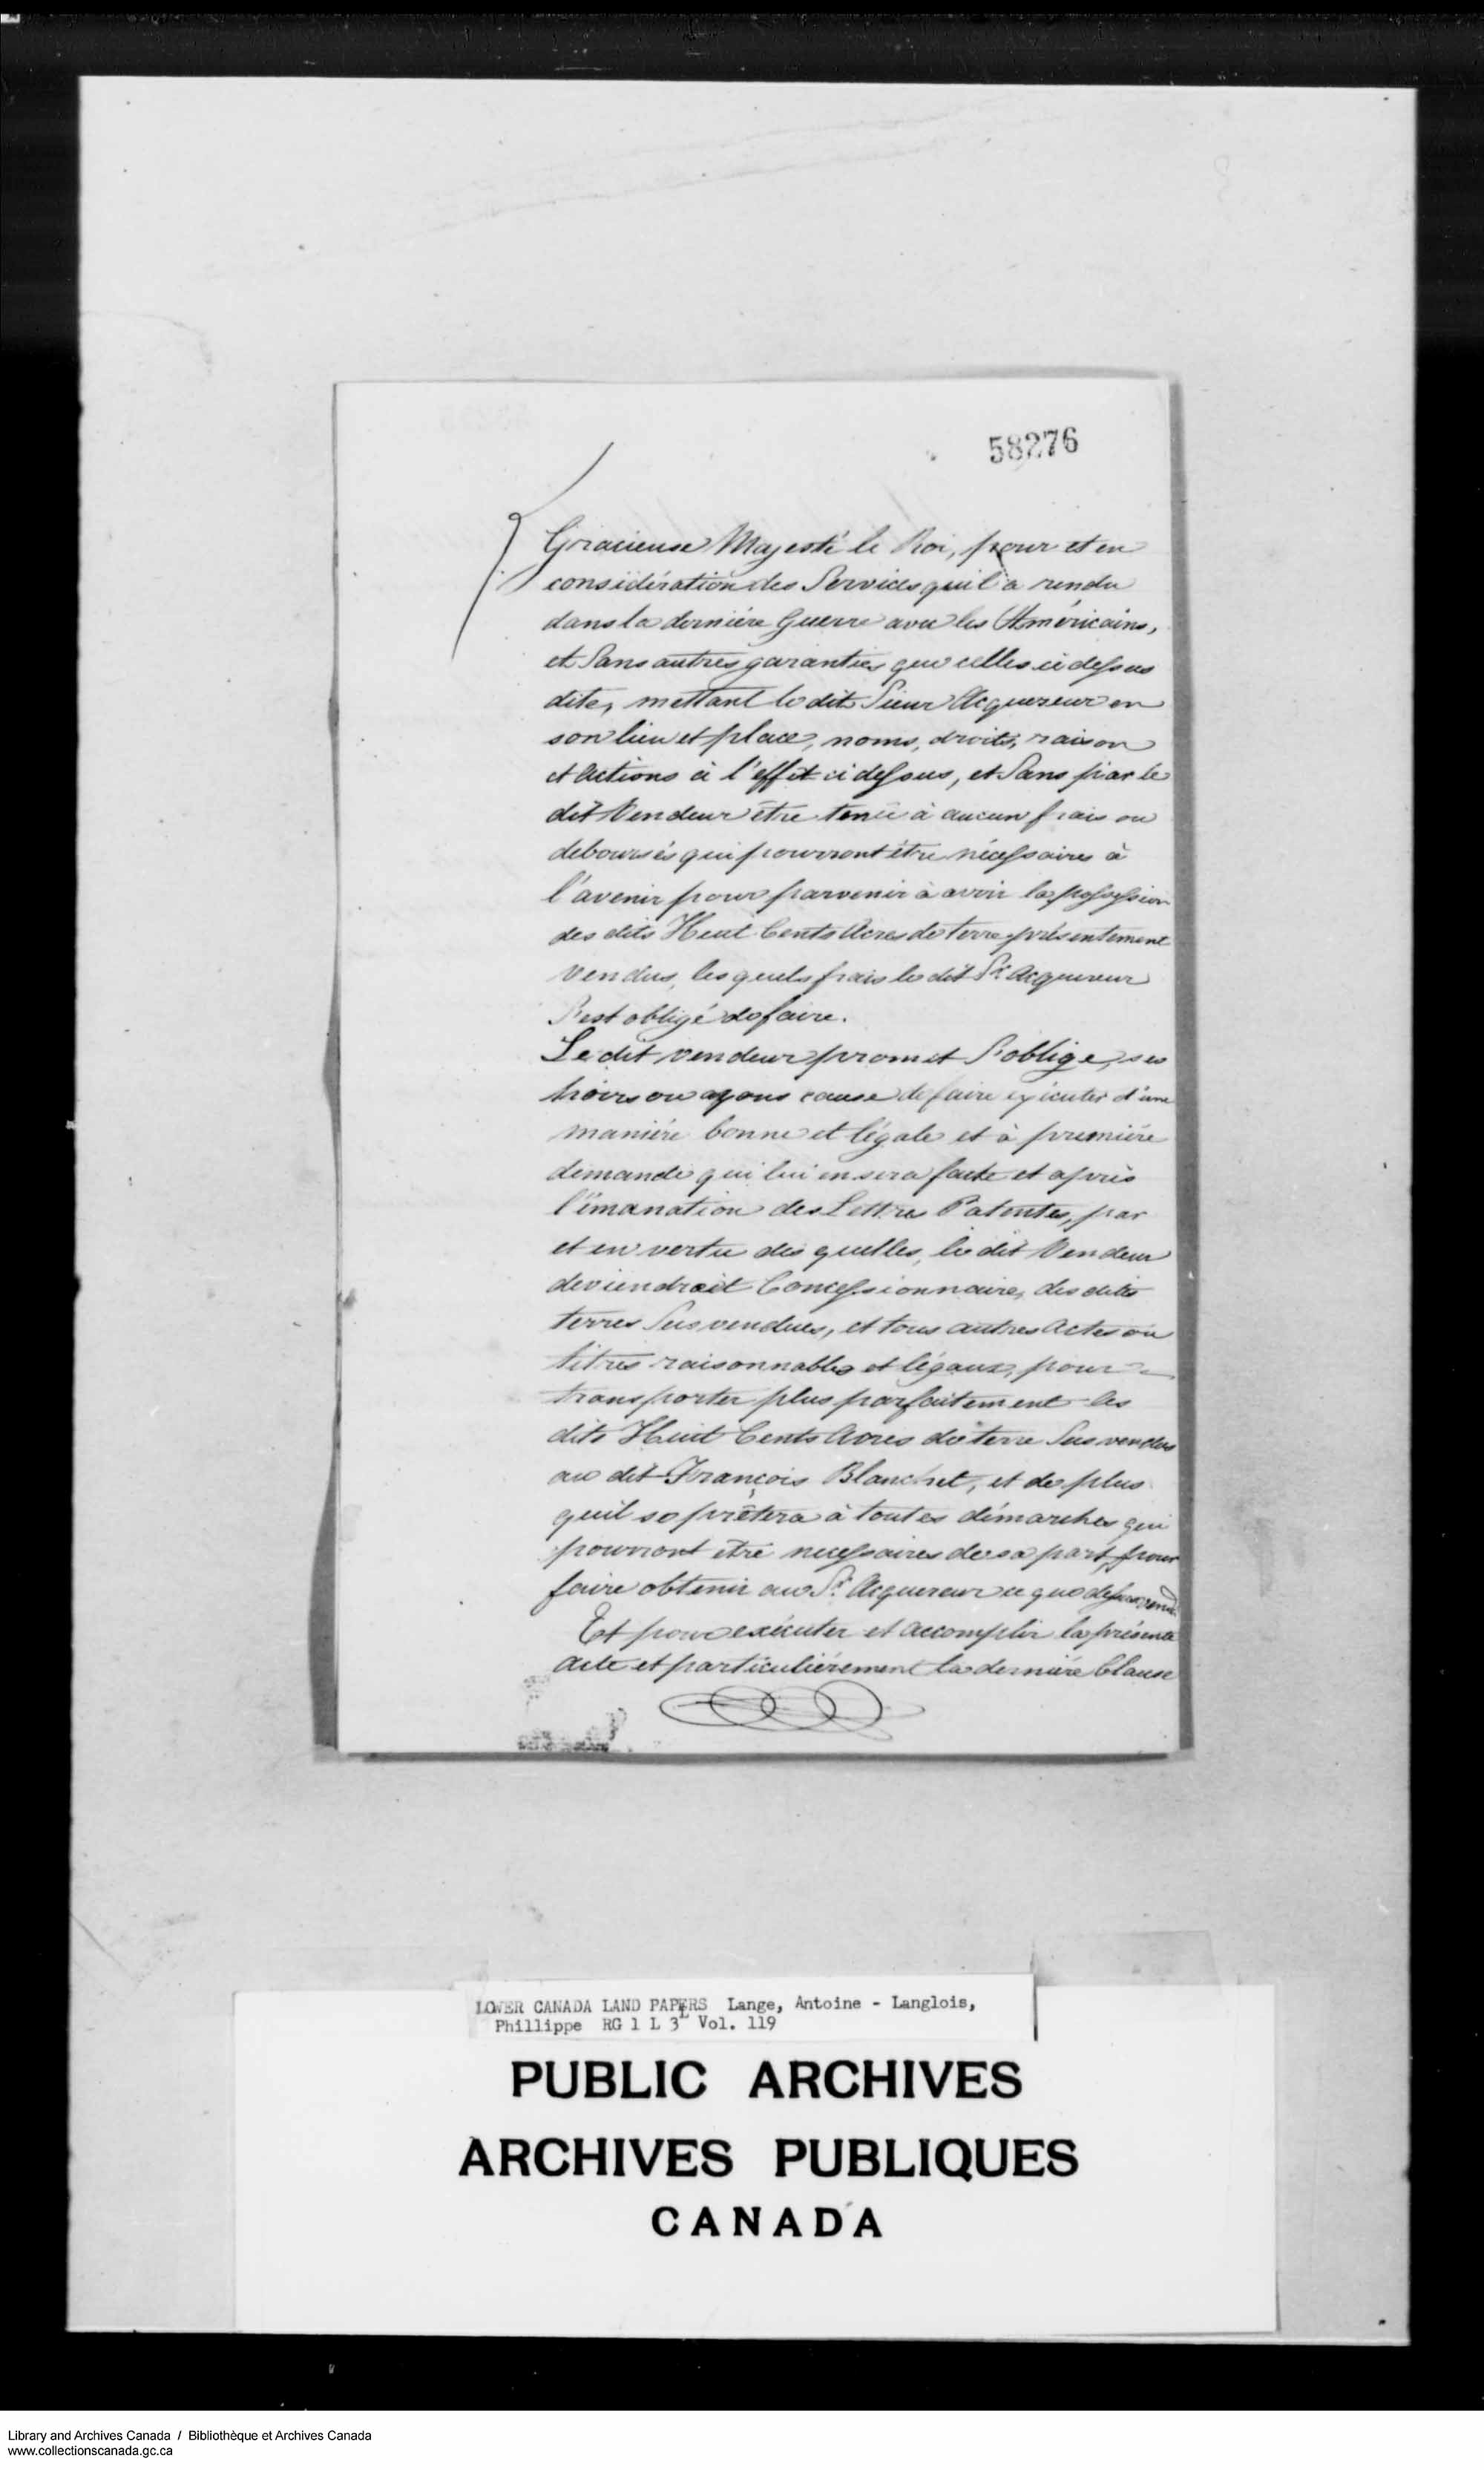 58276
Gracieuse Majesté le Roi, pour et en
considération des Services quil a rendu
dans la derniére Guerre avec les Américains,
et Sans autres garanties que celles ci dessus
dite, mettant le dit Sieur Acquereur en
son lieu et place, noms, droits, raison
et Actions à l'effet ci dessus, et Sans par le
dit Vendeur être tenu à aucun frais ou
deboursés qui pourront être nécessaires à
l'avenir pour parvenir à avoir la possession
des dits Huit Cents Acres de terre présentement
Vendus, les quels frais le dit Sr. Acquereur
S'est obligé de faire.
Le dit vendeur promet S'oblige, ses
hoirs ou ayans cause de faire exécuter d'une
maniére bonne et légale et à premiére
demande qui lui en sera faite et après
l'émanation des Lettres Patentes, par
et en vertu des quelles, le dit Vendeur
deviendroit Concessionnaire, des dites
terres Sus vendues, et tous autres Actes ou
titres raisonnables et légaux, pour
transporter plus parfaitement les
dits Huit Cents Acres de terre Sus vendus
au dit François Blanchet, et de plus
quil se prêtera à toutes démarches qui
pourront être necessaires de sa part, pour
faire obtenir au Sr. Acquereur ce que dessus vendu
Et pour exécuter et accomplir la présente
Acte et particuliérement la derniére Clause
LOWER CANADA LAND PAPERS Lange, Antoine - Langlois,
Phillippe RG 1 L 3L Vol. 119
PUBLIC ARCHIVES
ARCHIVES PUBLIQUES
CANADA
Library and Archives Canada / Bibliothèque et Archives Canada
www.collectionscanada.gc.ca